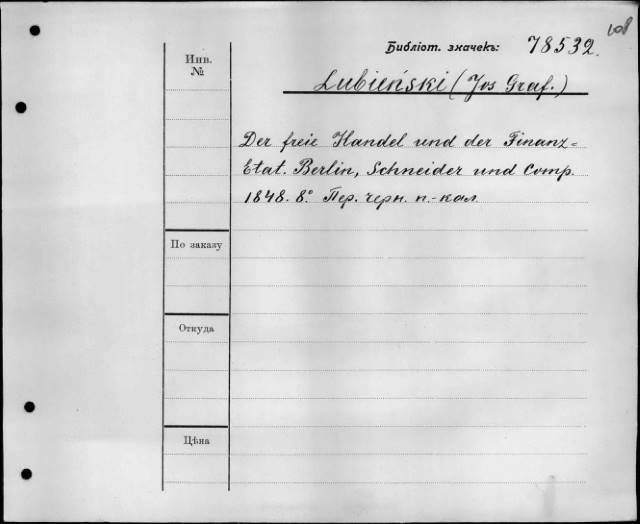 Библіот. значекъ: 78532.
Инв.
№
Łubieński (Jos Graf.)
Der freie Handel und der Finanz=
Etat. Berlin, Schneider und Comp.
1848. 8º. Пер. черн. п.-кал.
По заказу
Откуда
Цѣна